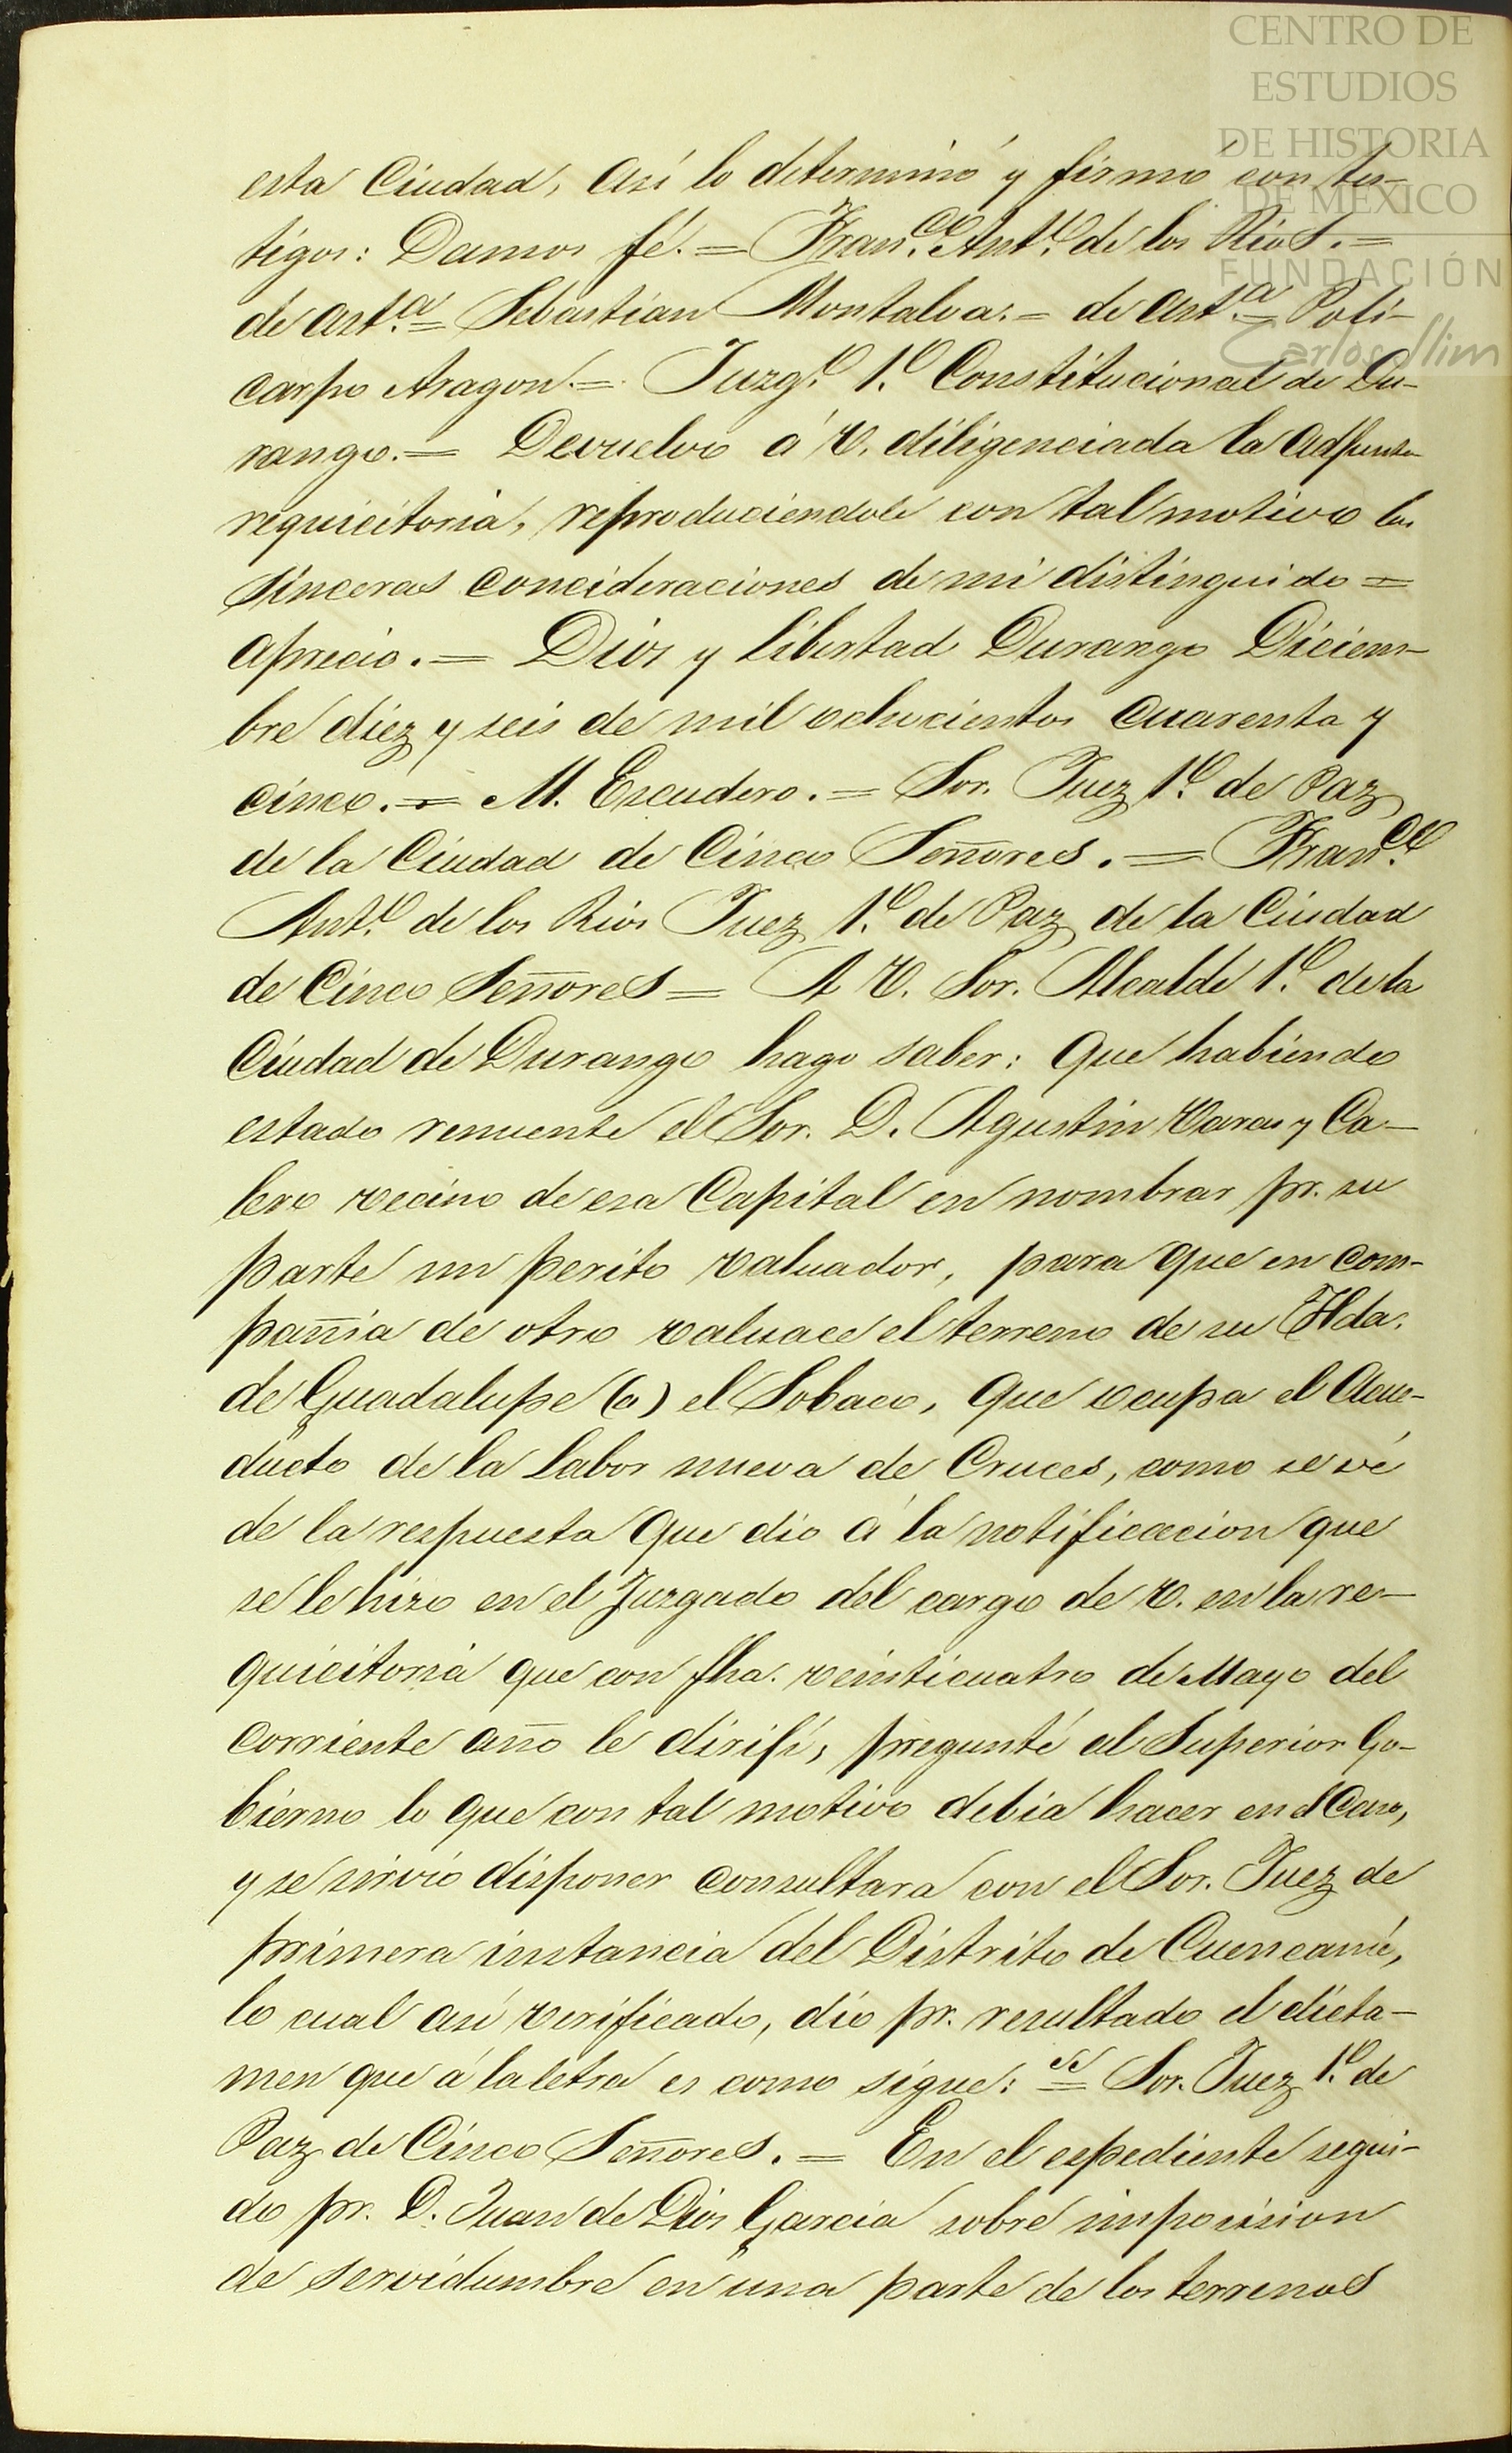 CENTRO DE
ESTUDIOS
DE HISTORIA
DE MÉXICO
FUNDACIÓN
Carlos Slim
esta Ciudad, así lo determinó y firmó con tes-
tigos: Damos fé. = Fran.co Ant.o de los Rios. =
de ast.a = Sebastian Montalva. = de ast.a = Poli-
carpo Aragon. = Juzg.o 1.o Constitucional de Du-
rango. = Devuelvo á V. diligenciada la adjunta
requicitoria, reproduciendole con tal motivo las
sinceras concideraciones de mi distinguido =
aprecio. = Dios y Libertad Durango Diciem-
bre diez y seis de mil ochocientos cuarenta y
cinco. = M. Escudero. = Sor. Juez 1.o de Paz
de la Ciudad de Cinco Señores. = Fran.co
Ant.o de los Rios Juez 1.o de Paz de la Ciudad
de Cinco Señores = A V. Sor. Alcalde 1.o de la
Ciudad de Durango hago saber: Que habiendo
estado renuente el Sor. D. Agustin Varas y Ca-
lero vecino de esa Capital en nombrar pr. su
parte un perito valuador, para que en com-
pañia de otro valuace el terreno de su Hda.
de Guadalupe (a) el Sobaco, que ocupa el Acue-
ducto de la Labor nueva de Cruces, como se vé
de la respuesta que dio á la notificacion que
se le hizo en el Juzgado del cargo de V. en la re-
quicitoria que con fha. veinticuatro de Mayo del
corriente año le dirijí, pregunté al Superior Go-
bierno lo que con tal motivo debia hacer en el Caso,
y se sirvió disponer consultara con el Sor. Juez de
primera instancia del Distrito de Cuencamé,
lo cual así verificado, dio pr. resultado el dicta-
men que á la letra es como sigue: = Sor. Juez 1.o de
Paz de Cinco Señores. = En el espediente segui-
do pr. D. Juan de Dios Garcia sobre imposision
de servidumbre en una parte de los terrenos